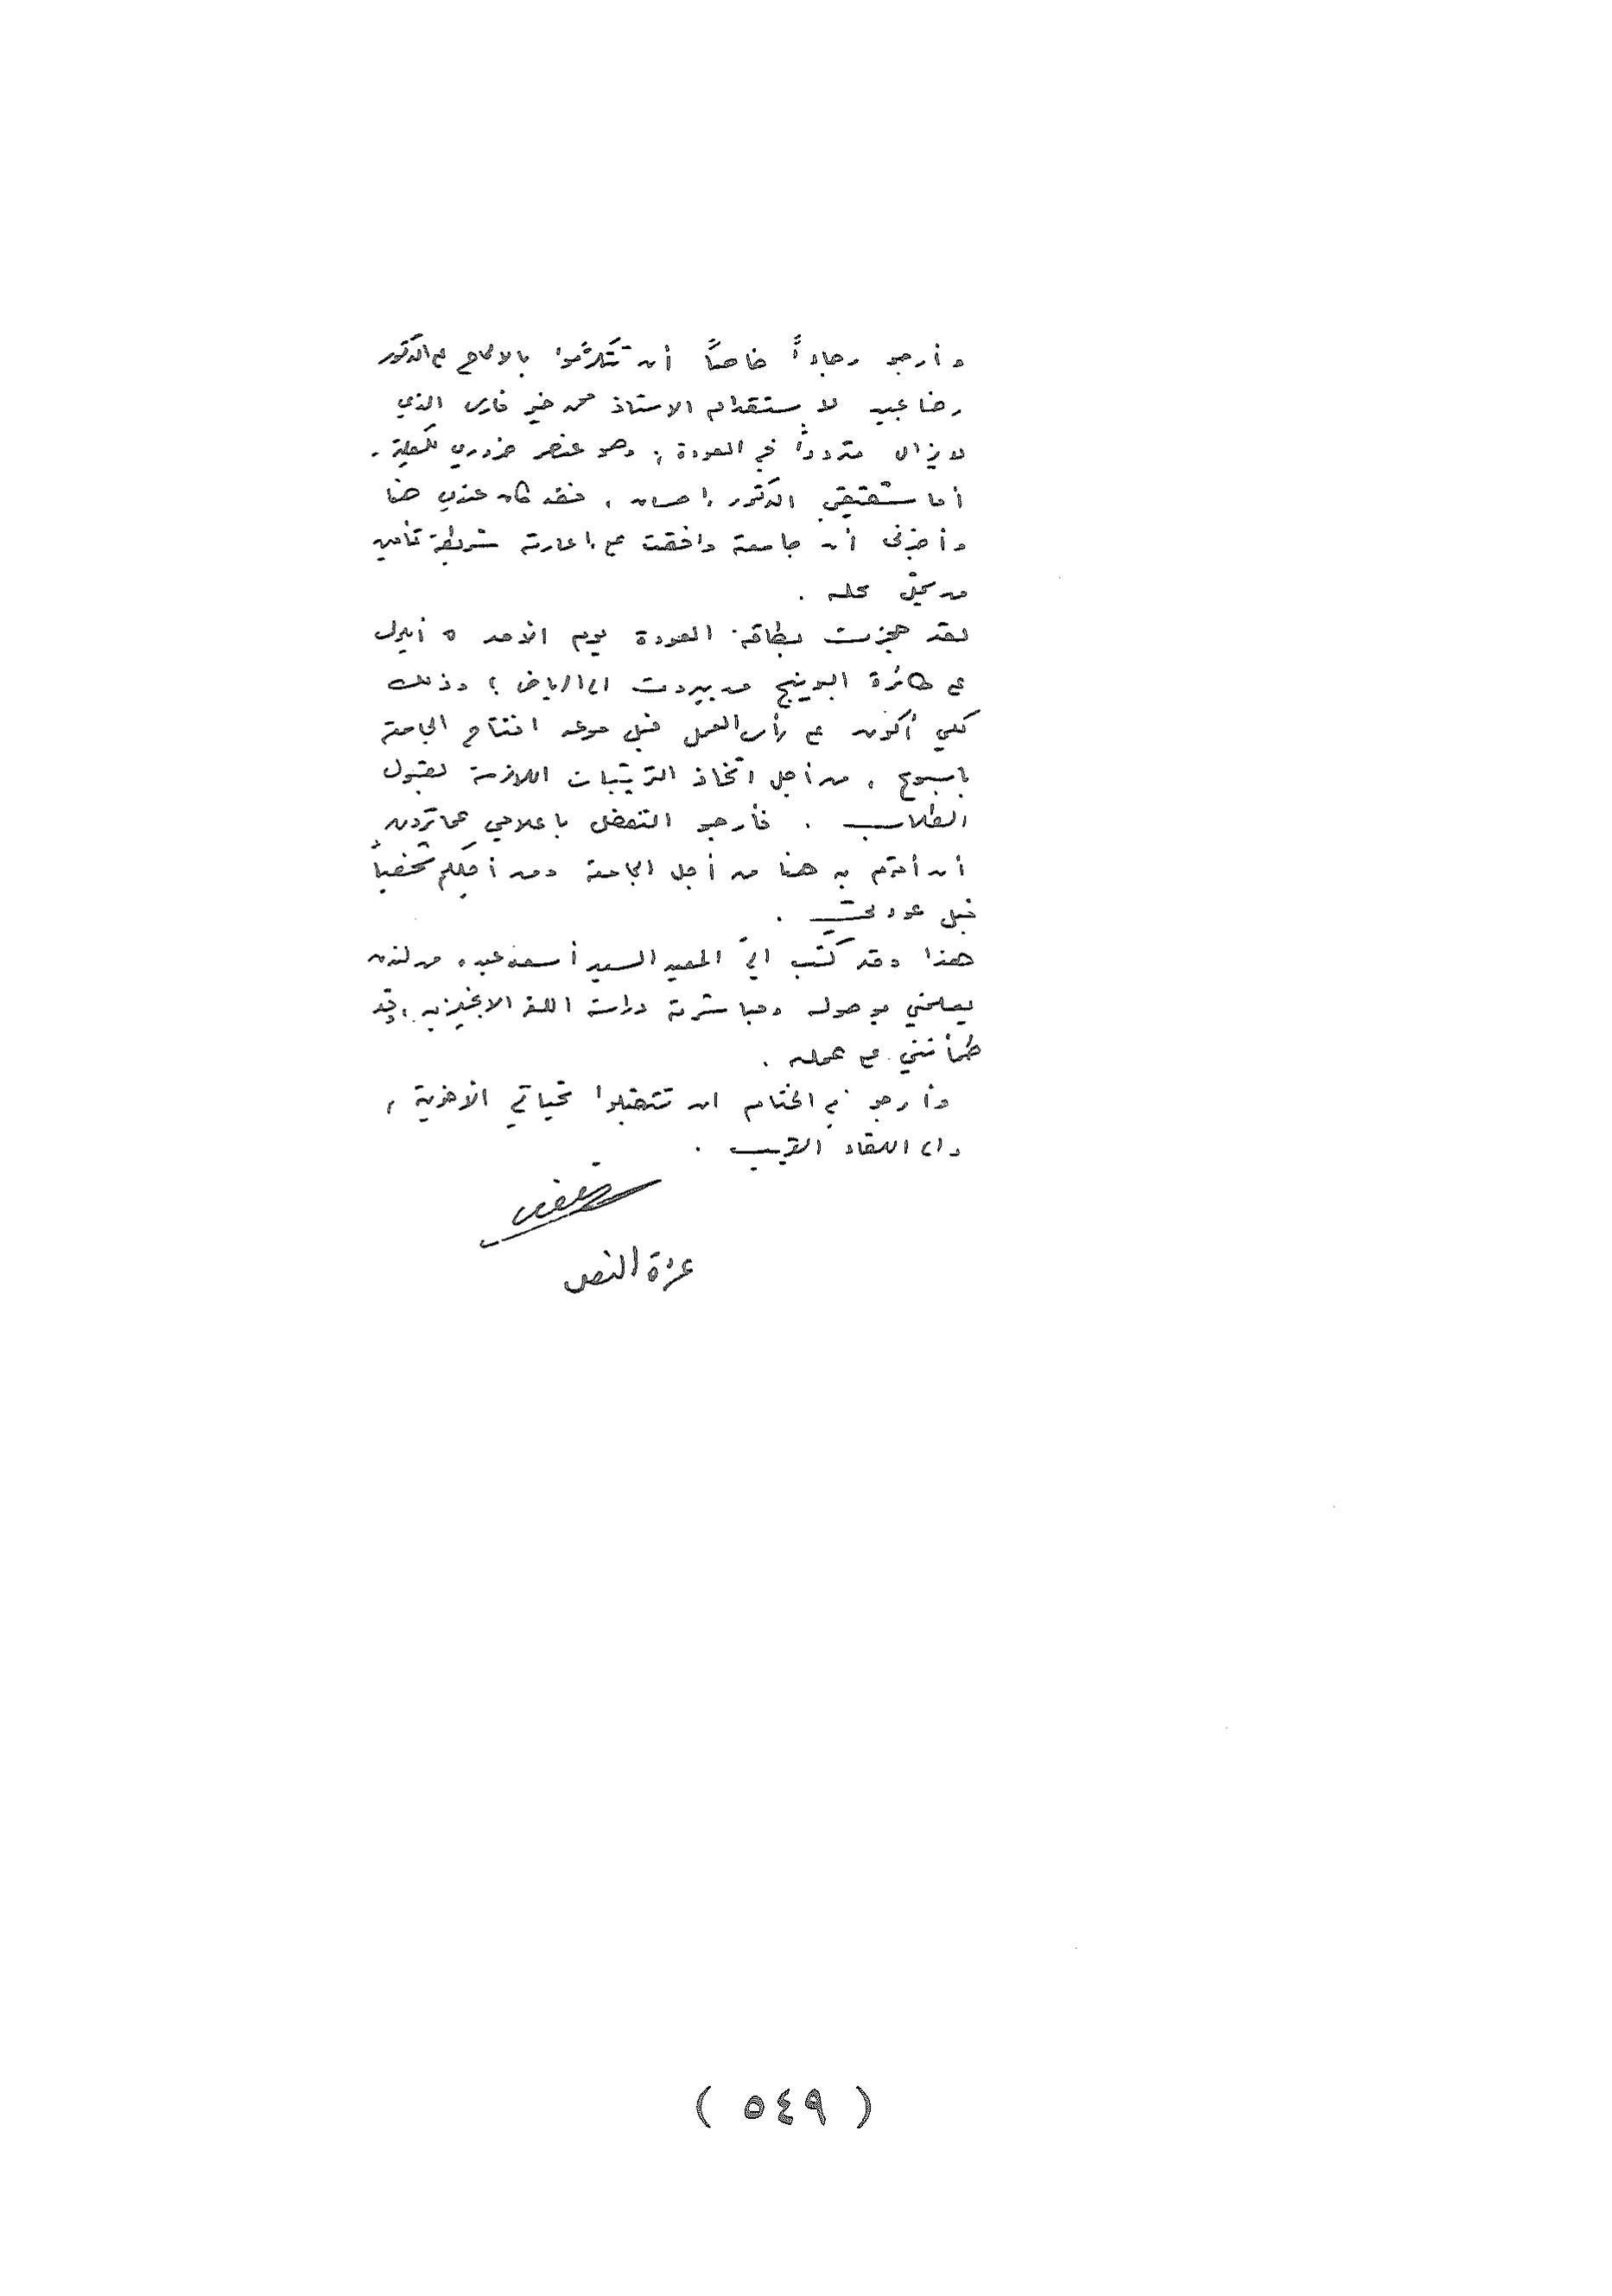 وأرجو رجاءً خاصاً أن تتكرموا بالالحاح على الدكتور
رضا عبيد لاستقدام الاستاذ محمد خير فارس الذي
لا يزال متردداً في العودة ؛ وهو عنصر ضروري للكلية .
أما شقيقي الدكتور إحسان ، فقد كان عندي هنا
وأخبرني أن جامعة وافقت على إعارته شريطة تأمين
من يحل محله .
لقد حجزت بطاقة العودة ليوم الأحد ٥ أيلول
على طائرة البوينج من بيروت الى الرياض ؛ وذلك
كي أكون على رأس العمل قبل موعد افتتاح الجامعة
بأسبوع ، من أجل اتخاذ الترتيبات اللازمة لقبول
الطلاب . فأرجو التفضل بإعلامي عما تريدون
أن أهتم به هنا من أجل الجامعة ومن أجلكم شخصياً
قبل عودتي .
هذا وقد كتب اليّ المعيد السيد أسعد عبده من لندن
يعلمني بوصوله ومباشرته دراسة اللغة الانجليزية ، وقد
طمأنني على عمله .
وأرجو في الختام ان تتقبلوا تحياتي الأخوية ،
والى اللقاء القريب .
عزة النص
( ٥٤٩ )